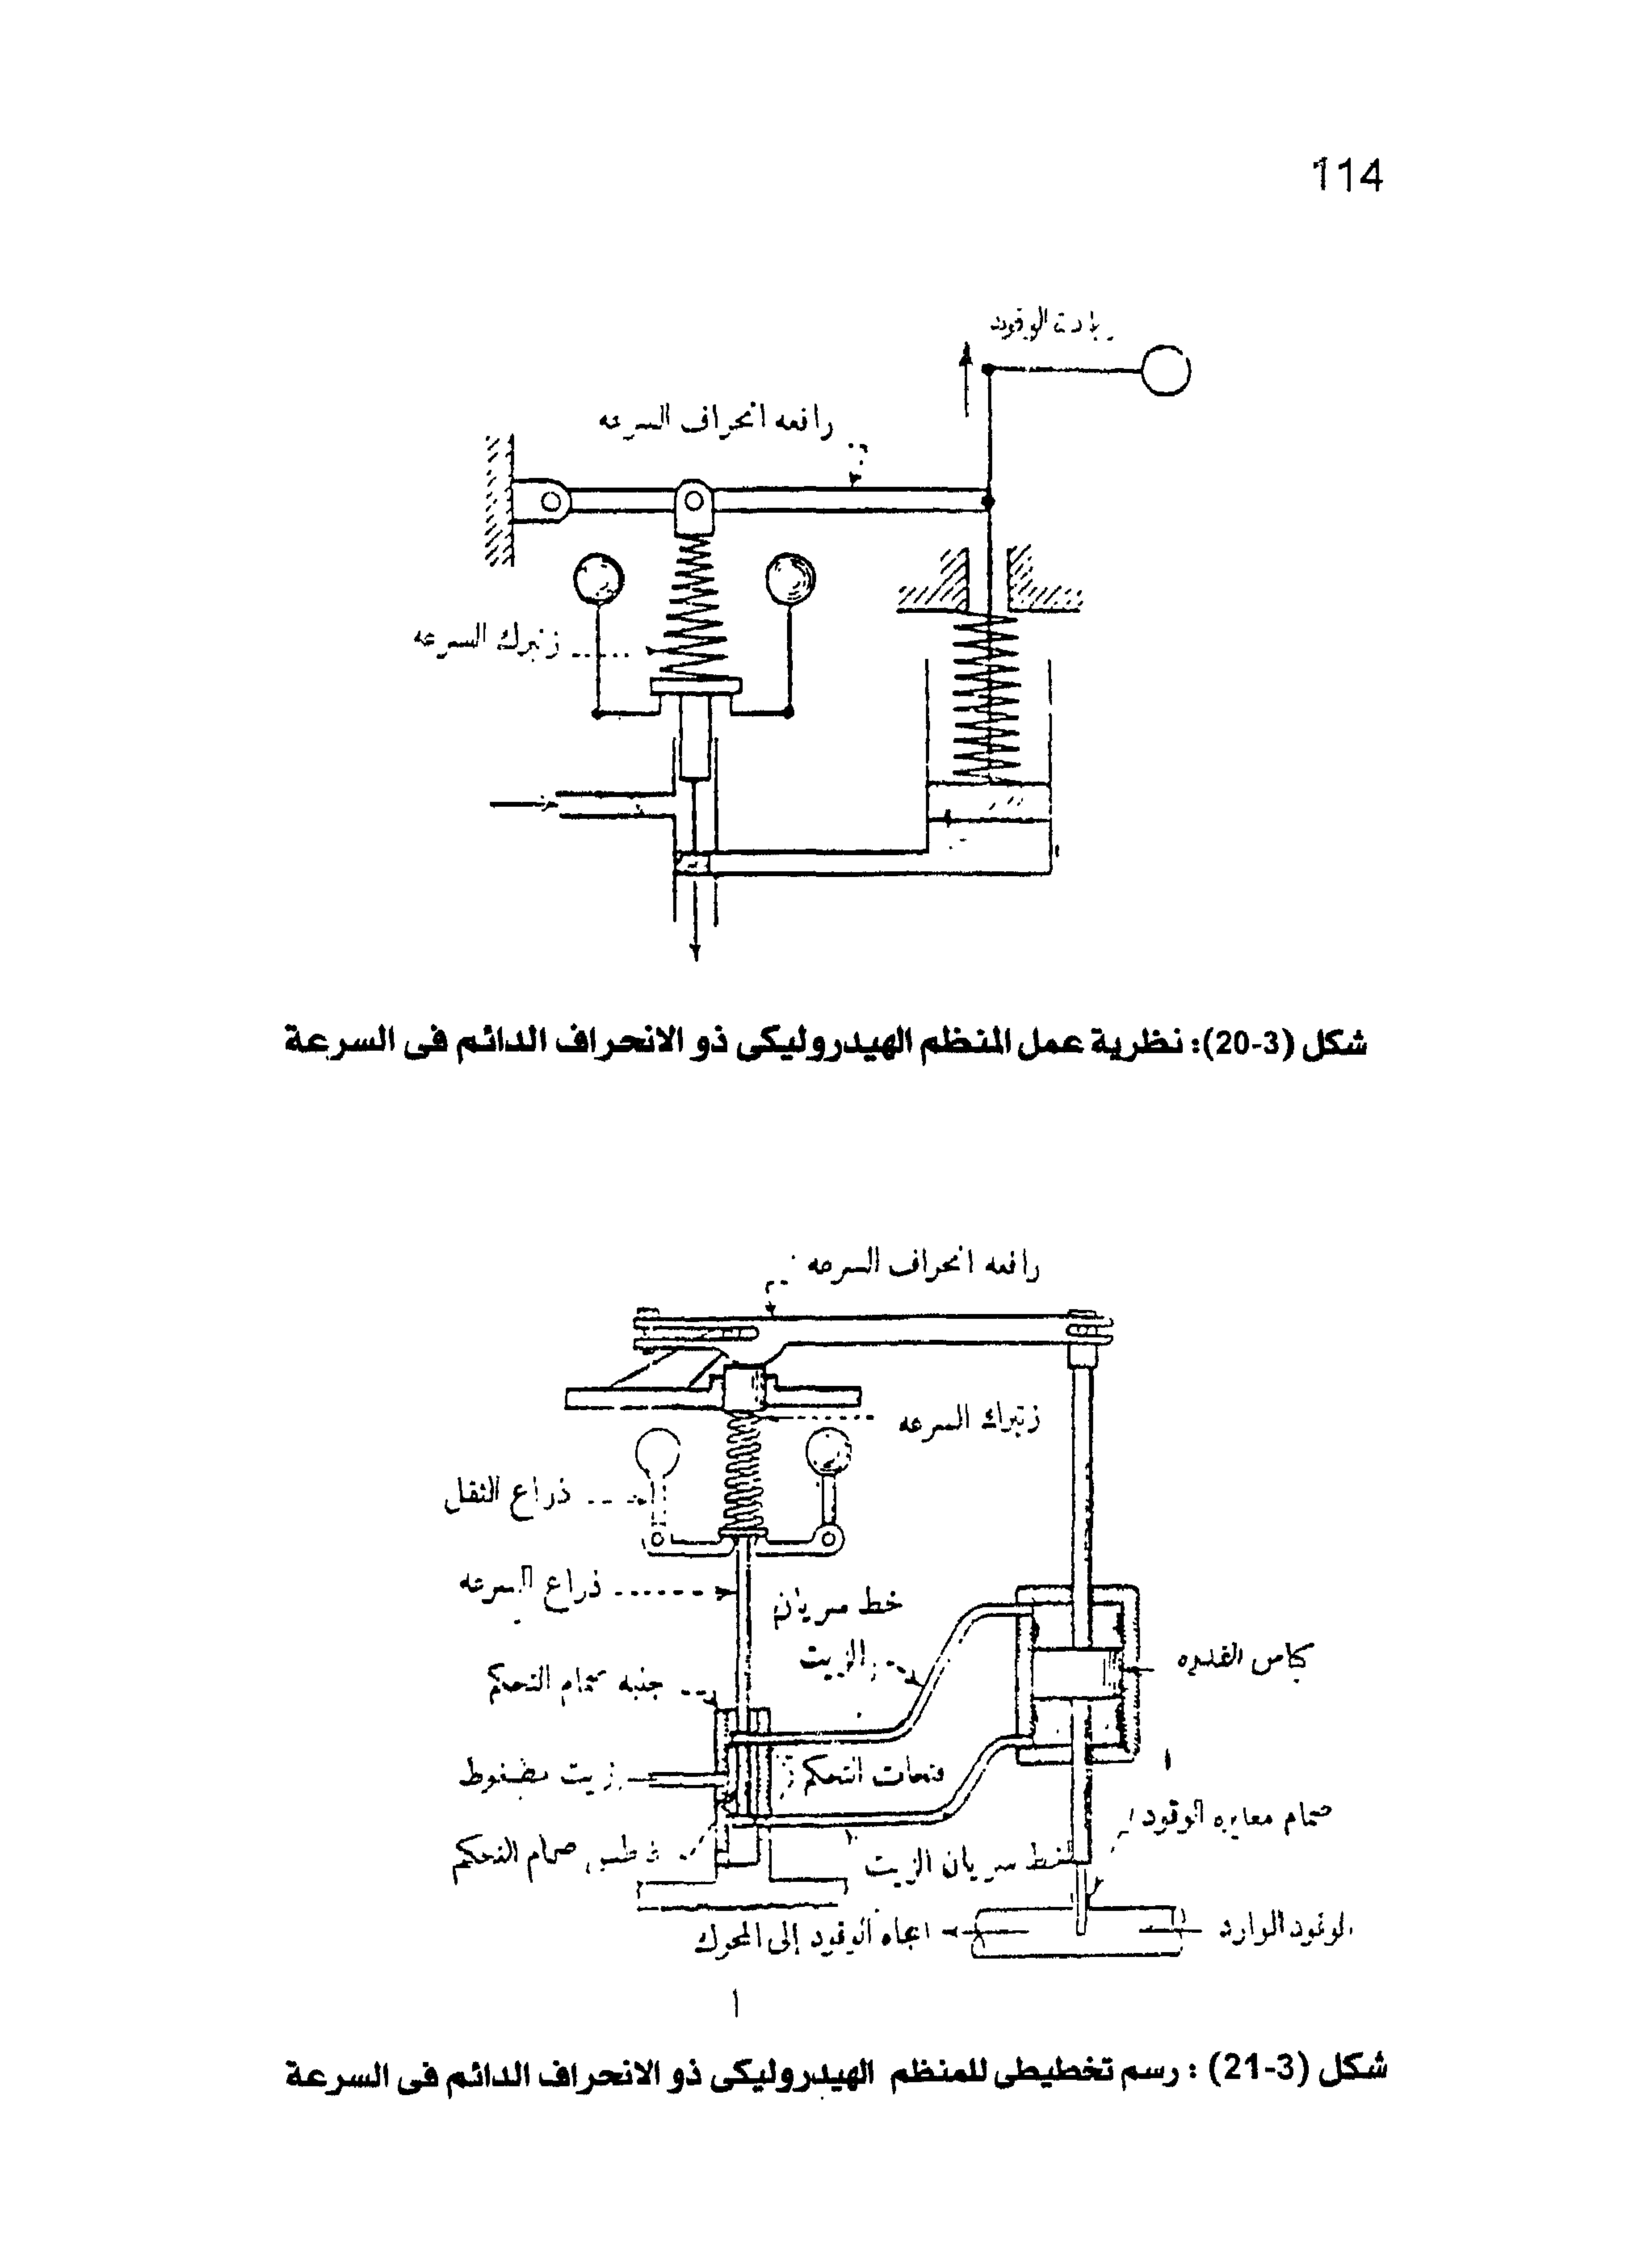 114
زيادة الوقود
رافعه انحراف السرعه
زنبرك السرعه
شكل (3-20): نظرية عمل المنظم الهيدروليكى ذو الانحراف الدائم فى السرعة
رافعه انحراف السرعه
زنبرك السرعه
ذراع الثقل
ذراع السرعه
خط سريان
الزيت
كباس القدره
جنبه صمام التحكم
فتحات التحكم
زيت مضغوط
صمام معايره الوقود
غاطس صمام التحكم
خط سريان الزيت
الوقود الوارد
اتجاه الوقود إلى المحرك
شكل (3-21) : رسم تخطيطى للمنظم الهيدروليكى ذو الانحراف الدائم فى السرعة